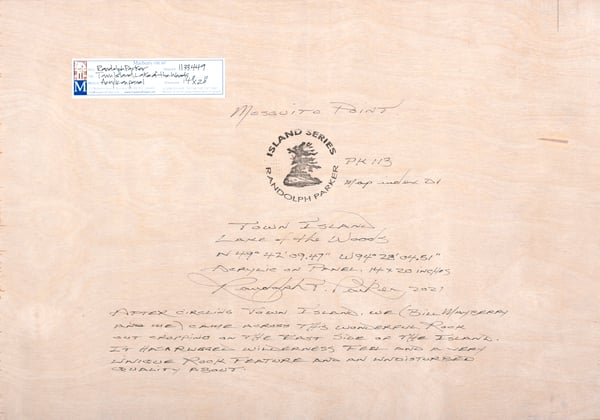 Randolph Parker 1133449
Town Island, Lake of the Woods
Acrylic on panel 14x20
M
Mosquito Point
ISLAND SERIES
RANDOLPH PARKER
PK 113
Map index D1
Town Island
Lake of the Woods
N 49° 42' 09.47" W 94° 28' 04.51"
Acrylic on Panel, 14 x 20 inches
Randolph T. Parker 2021
After circling Town Island, we (Bill Mayberry
and me) came across this wonderful rock
out cropping on the East side of the Island.
It has a rugged wilderness feel and a very
unique rock feature and an undisturbed
quality about.